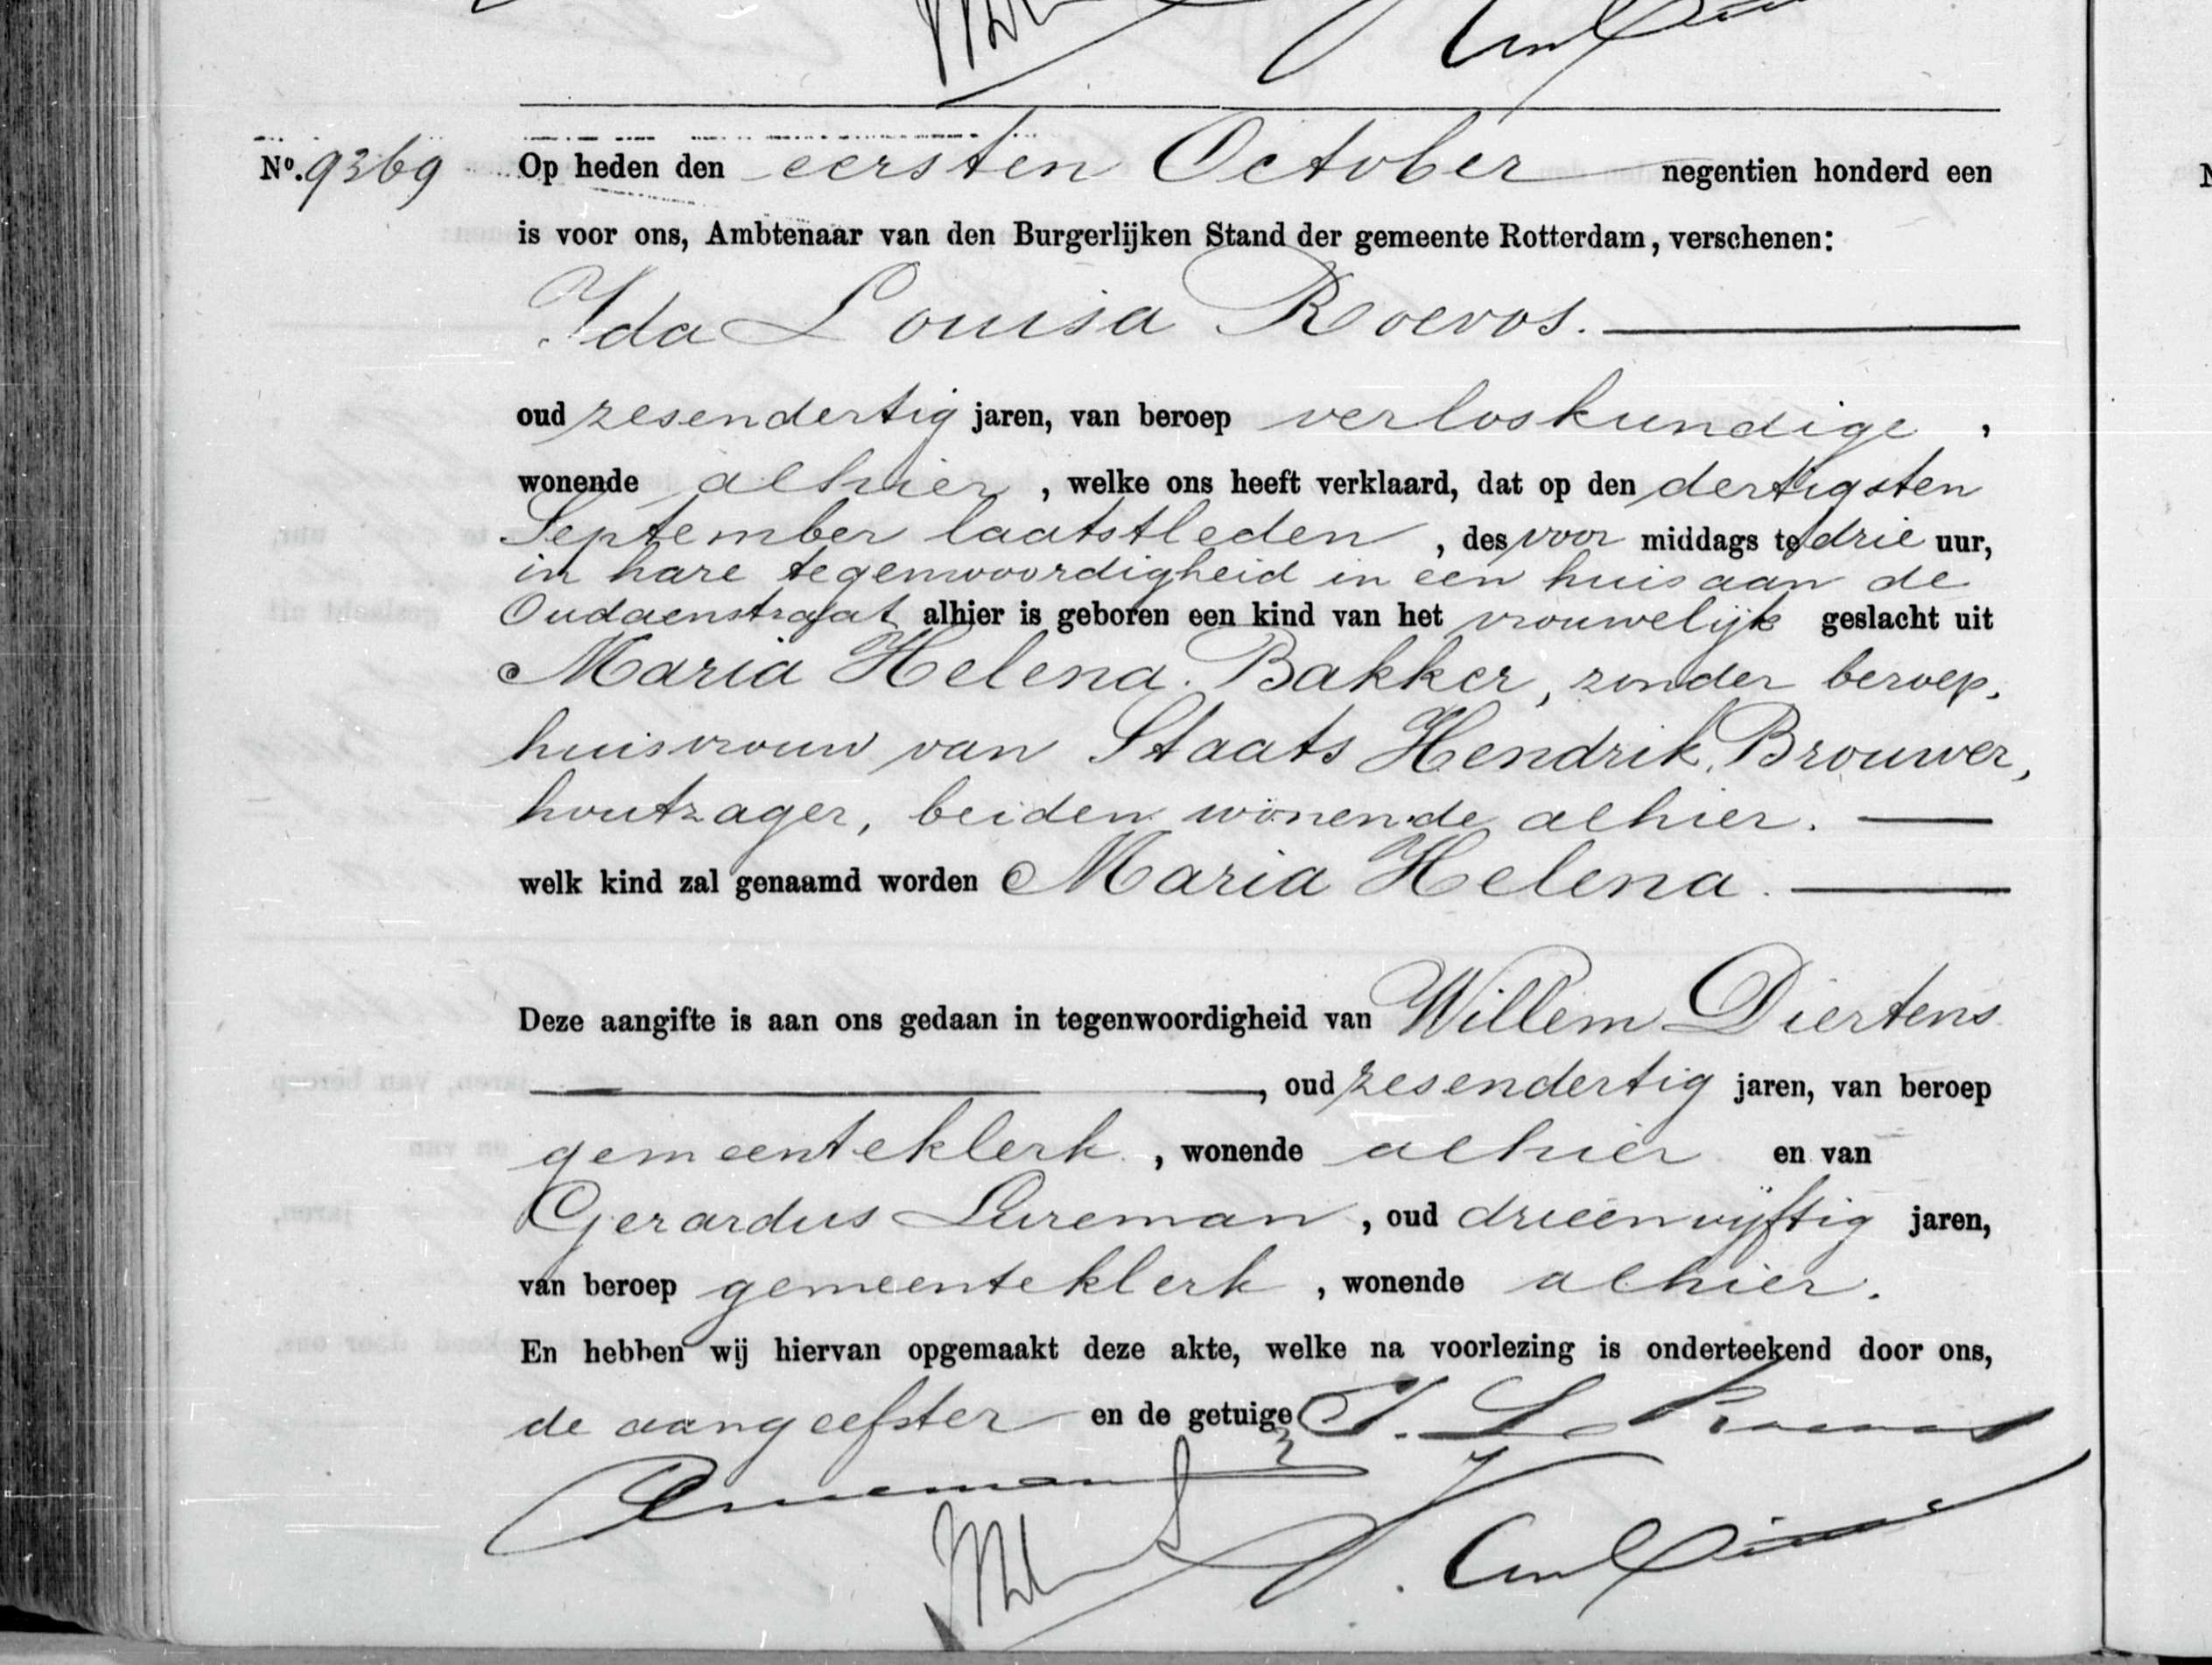 Nº. 9369 Op heden den eersten October negentien honderd een
is voor ons, Ambtenaar van den Burgerlijken Stand der gemeente Rotterdam, verschenen:
Ida Louisa Roevos.
oud zesendertig jaren, van beroep verloskundige,
wonende alhier, welke ons heeft verklaard, dat op den dertigsten
September laatstleden, des voor middags te drie uur,
in hare tegenwoordigheid in een huis aan de
Oudaenstraat alhier is geboren een kind van het vrouwelijk geslacht uit
Maria Helena Bakker, zonder beroep,
huisvrouw van Staats Hendrik Brouwer,
houtzager, beiden wonende alhier.
welk kind zal genaamd worden Maria Helena.
Deze aangifte is aan ons gedaan in tegenwoordigheid van Willem Diertens
, oud zesendertig jaren, van beroep
gemeenteklerk, wonende alhier en van
Gerardus Lureman, oud drieënvijftig jaren,
van beroep gemeenteklerk, wonende alhier.
En hebben wij hiervan opgemaakt deze akte, welke na voorlezing is onderteekend door ons,
de aangeefster en de getuigen I. L. Roevos